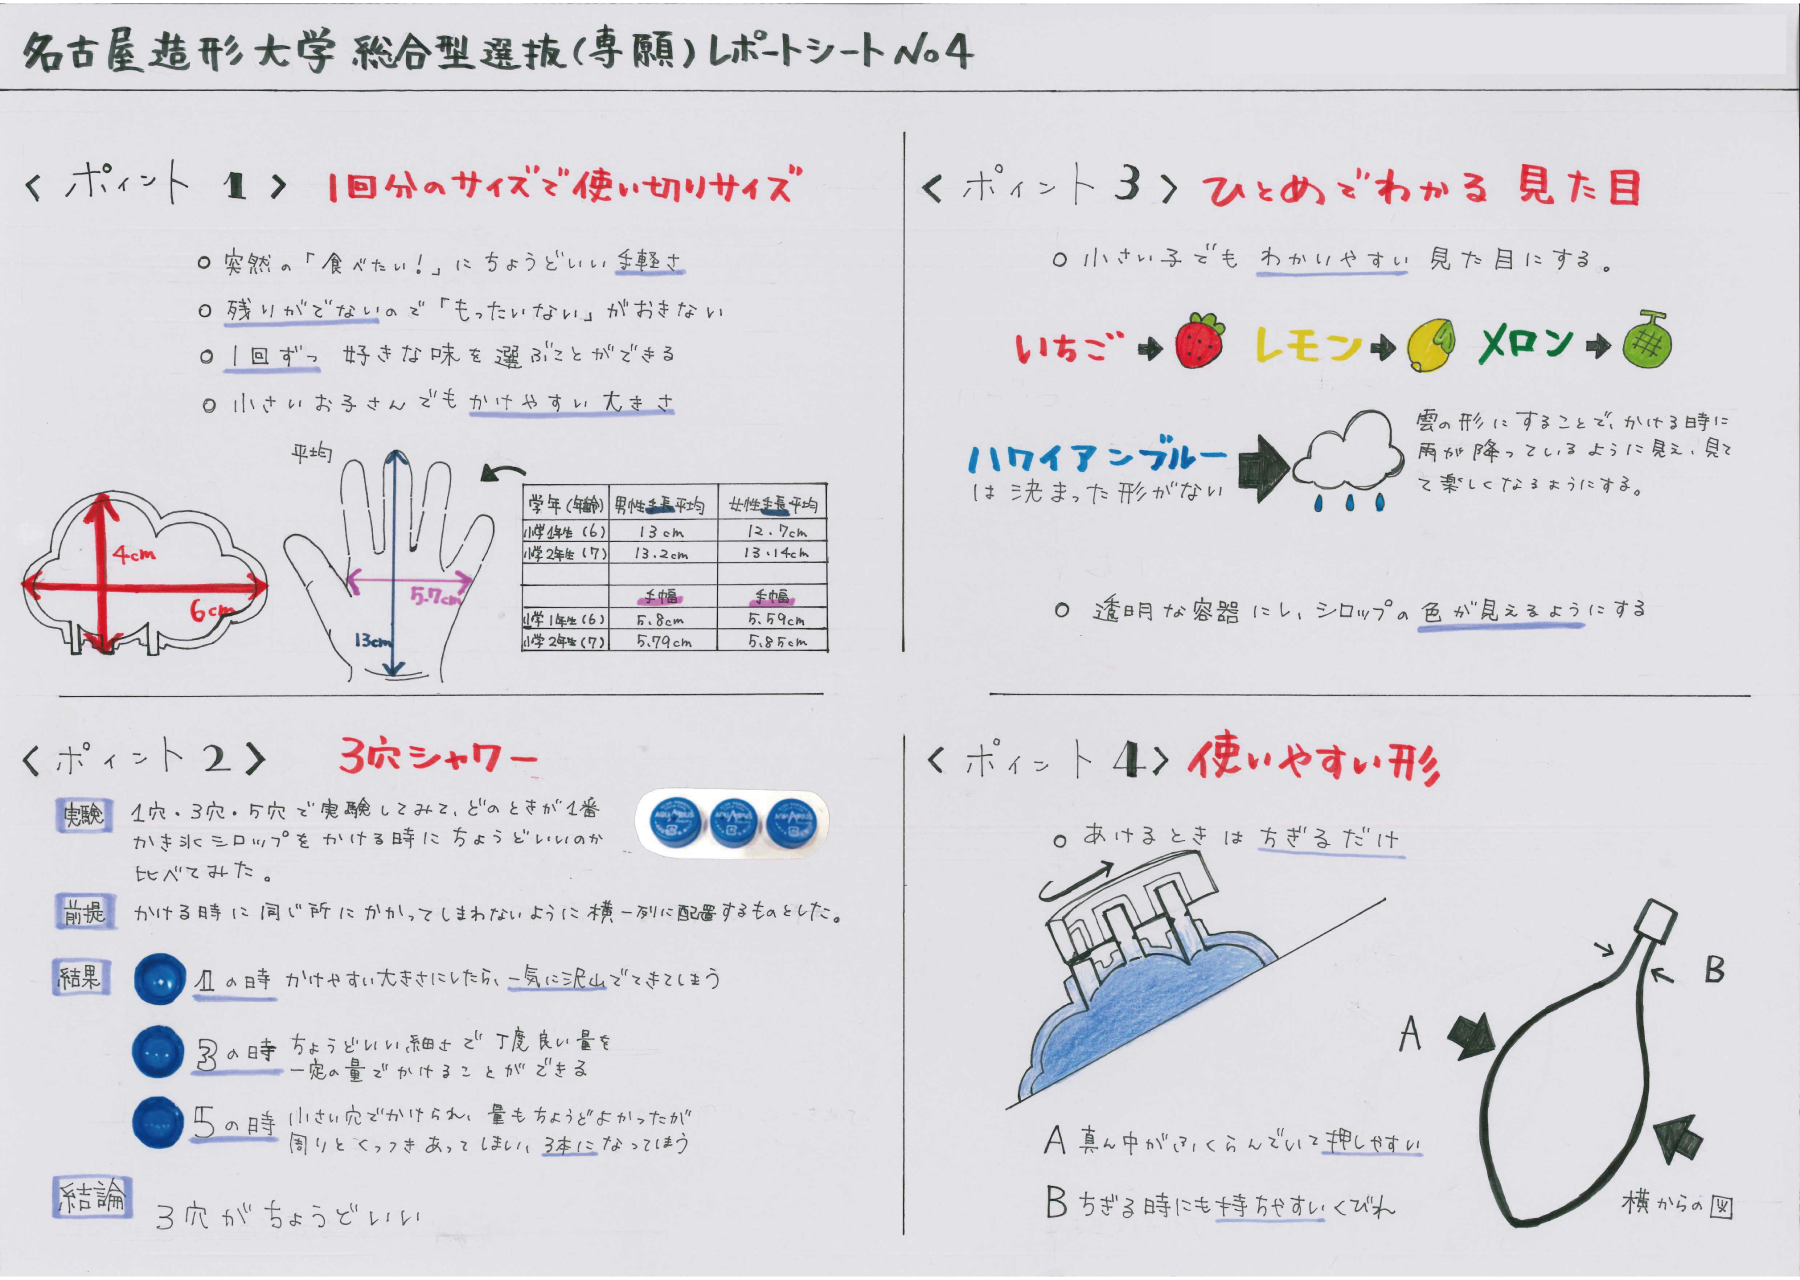 名古屋造形大学 総合型選抜(専願)レポートシートNo4
<ポイント 1> 1回分のサイズで使い切りサイズ
○ 突然の「食べたい!」にちょうどいい手軽さ
○ 残りがでないので「もったいない」がおきない
○ 1回ずつ 好きな味を選ぶことができる
○ 小さいお子さんでもかけやすい大きさ
4cm
6cm
平均
5.7cm
13cm
学年(年齢) 男性手長平均 女性手長平均
小学1年生(6) 13cm 12.7cm
小学2年生(7) 13.2cm 13.14cm
手幅 手幅
小学1年生(6) 5.8cm 5.59cm
小学2年生(7) 5.79cm 5.85cm
<ポイント 2> 3穴シャワー
実験 1穴・3穴・5穴で実験してみて、どのときが1番
かき氷シロップをかける時にちょうどいいのか
比べてみた。
AQUARIUS AQUARIUS AQUARIUS
前提 かける時に同じ所にかかってしまわないように横一列に配置するものとした。
結果 1の時 かけやすい大きさにしたら、一気に沢山でてきてしまう
3の時 ちょうどいい細さで丁度良い量を
一定の量でかけることができる
5の時 小さい穴でかけられ、量もちょうどよかったが
周りとくっつきあってしまい、3本になってしまう
結論 3穴がちょうどいい
<ポイント 3> ひとめでわかる 見た目
○ 小さい子でも わかいやすい 見た目にする。
いちご→ レモン→ メロン→
ハワイアンブルー
は決まった形がない
雲の形にすることで、かける時に
雨が降っているように見え、見て
て楽しくなるようにする。
○ 透明な容器にし、シロップの色が見えるようにする
<ポイント 4> 使いやすい形
○ あけるときは ちぎるだけ
A
B
A 真ん中がふくらんでいて押しやすい
B ちぎる時にも持ちやすいくびれ
横からの図